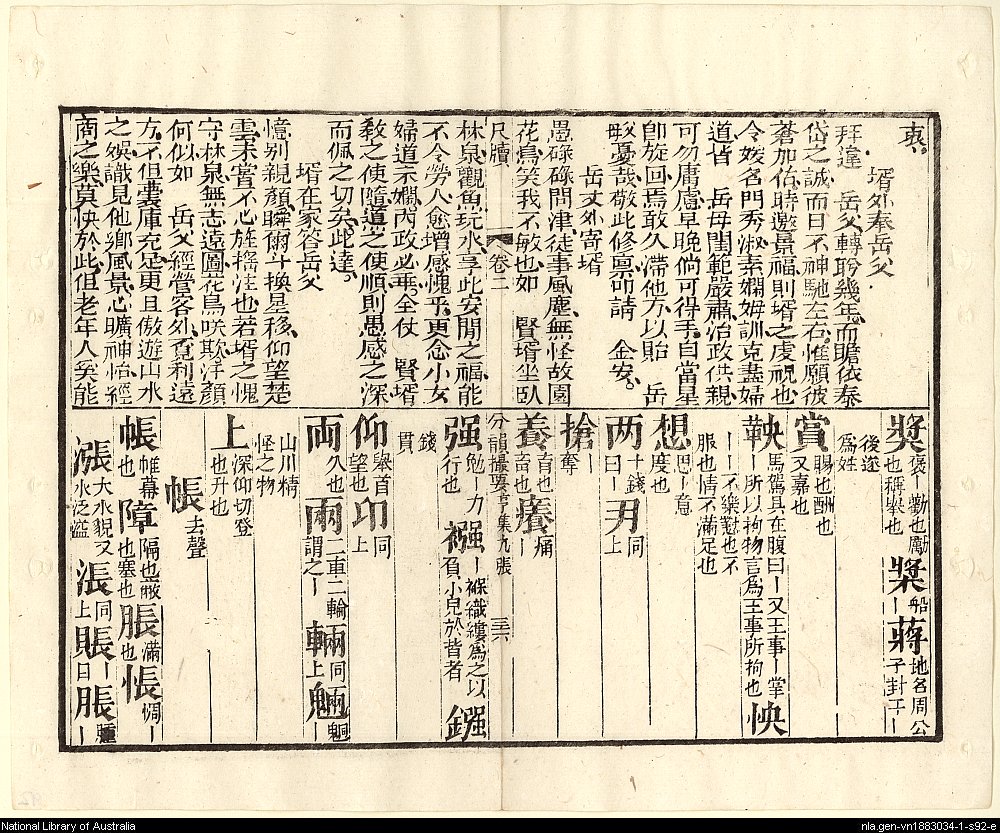 衷
壻外奉岳父
拜違 岳父轉聆幾年而瞻依泰
岱之誠而日不神馳左右惟願彼
蒼加佑時邀景福則壻之虔視也
令嫒名門秀淑素嫻姆訓克盡婦
道皆 岳母閨範嚴肅治政供親
可勿庸慮早晚倘可得手自當星
卽旋回焉敢久滯他方以貽 岳
父憂哉敬此修稟叩請 金安
岳父外寄壻
愚碌碌問津徒事風塵無怪故園
花鳥笑我不敏也如 賢壻坐臥
尺牘 卷二
林泉觀魚玩水享此安閒之福能
不令勞人愈增感愧乎更念小女
婦道示嫻丙政必乖全仗 賢壻
敎之使隨道之使順則愚感之深
而佩之切矣此達
壻在家答岳父
憶别親顏瞬爾斗換星移仰望楚
雲未嘗不心旌搖注也若壻之愧
守林泉無志遠圖花鳥咲欺洋顏
何似如 岳父經營客外覓利遠
方不但囊庫充足更且傲遊山水
之娛識見他鄉風景心曠神怡經
商之樂莫快於此但老年人矣能
奬褒丨勸也勵也稱奬也 槳船丨 蔣地名周公子封于丨
後遂爲姓
賞賜也酬也又嘉也
鞅馬駕具在腹曰丨又王事丨掌丨所以拘物言爲王事所拘也 怏
丨丨不樂懟也不服也情不滿足也
想思丨意度也
两十錢曰丨 刄同上
搶奪丨
養育也畜也 癢痛丨
分韻撮要亭集九張 三六
强勉丨力行也 襁丨褓織縷爲之以負小兒於背者 鏹
錢貫
仰舉首望也 卬同上
両久也 兩二重二輪謂之丨 輛同上 魎魍丨
山川精怪之物
上深仰切登也升也
帳去聲
帳帷幕也 障隔也蔽也塞也 脹滿也 悵惆丨
漲大水貎又水泛溢 涱同上 賬丨日 脹腫丨
National Library of Australia
nla.gen-vn1883034-1-s92-e